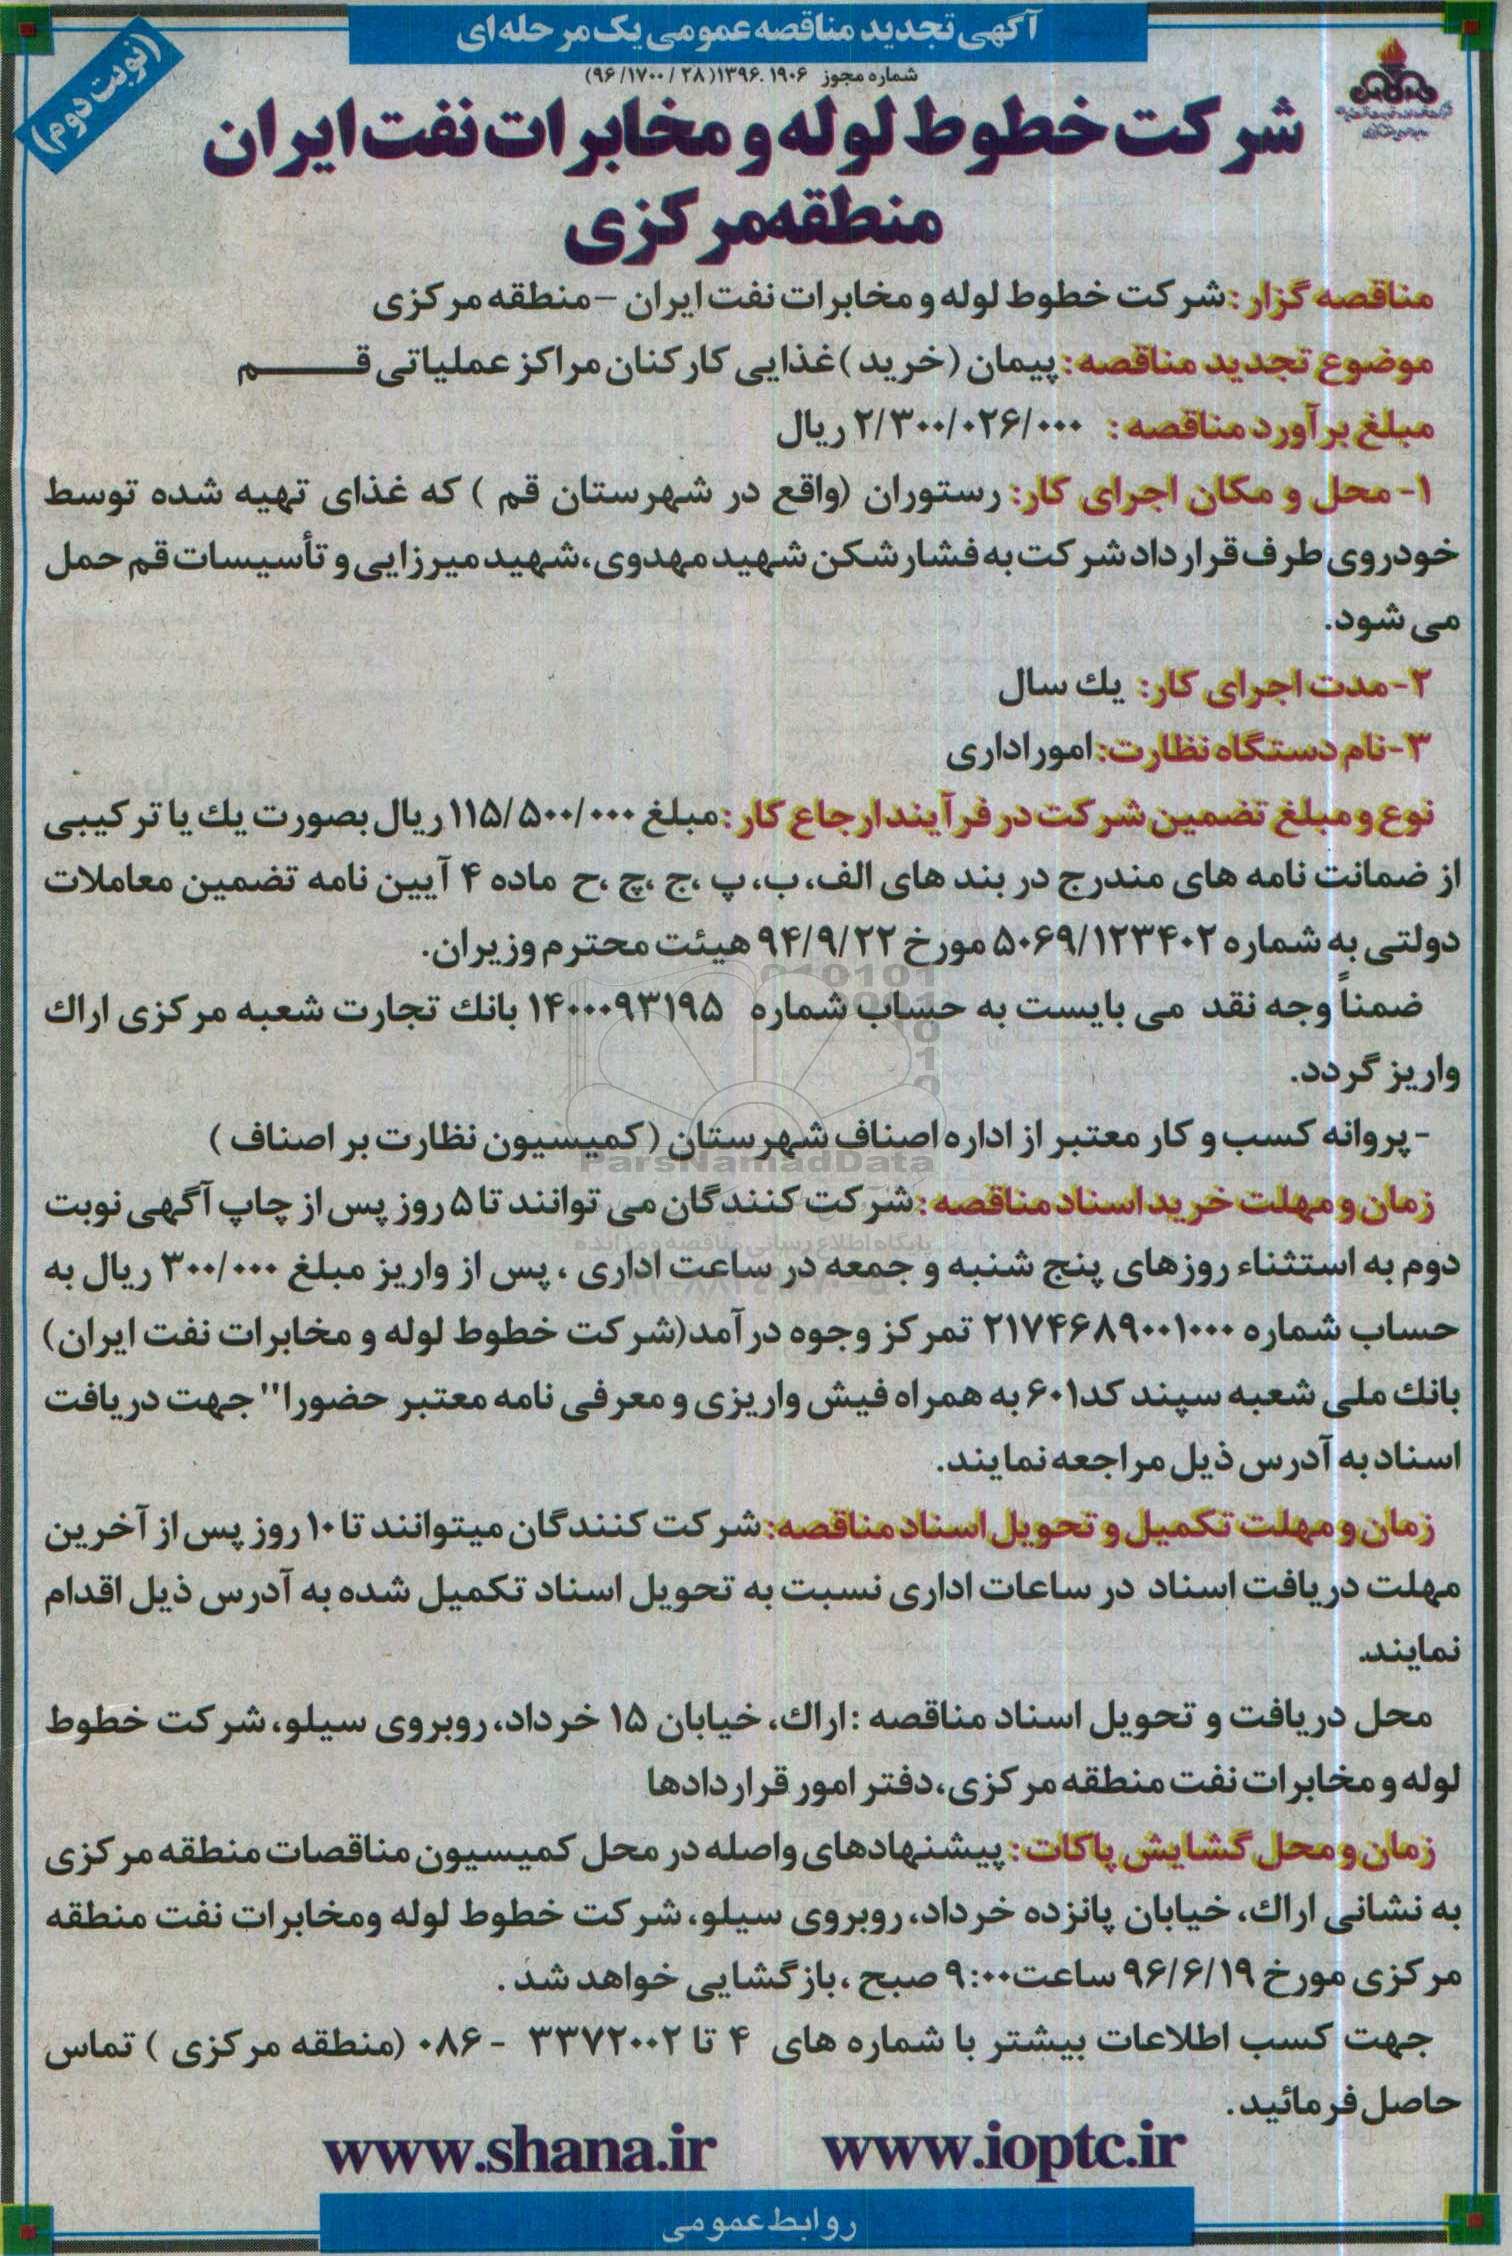 آگهی تجدید مناقصه عمومی یک مرحله ای
(نوبت دوم)
شماره مجوز ۱۳۹۶.۱۹۰۶ (۲۸ / ۱۷۰۰/ ۹۶)
شرکت خطوط لوله و مخابرات نفت ایران
منطقه مرکزی
مناقصه گزار : شرکت خطوط لوله و مخابرات نفت ایران – منطقه مرکزی
موضوع تجدید مناقصه: پیمان (خرید) غذایی کارکنان مراکز عملیاتی قم
مبلغ برآورد مناقصه : ۲/۳۰۰/۰۲۶/۰۰۰ ریال
۱- محل و مکان اجرای کار: رستوران (واقع در شهرستان قم ) که غذای تهیه شده توسط
خودروی طرف قرارداد شرکت به فشار شکن شهید مهدوی، شهید میرزایی و تأسیسات قم حمل
می شود.
۲-مدت اجرای کار: یك سال
۳-نام دستگاه نظارت: امور اداری
نوع و مبلغ تضمین شرکت در فرآیند ارجاع کار : مبلغ ۱۱۵/۵۰۰/۰۰۰ ریال بصورت یك یا ترکیبی
از ضمانت نامه های مندرج در بند های الف، ب، پ ،ج ،چ ،ح ماده ۴ آیین نامه تضمین معاملات
دولتی به شماره ۵۰۶۹/۱۲۳۴۰۲ مورخ ۹۴/۹/۲۲ هیئت محترم وزیران.
ضمناً وجه نقد می بایست به حساب شماره ۱۴۰۰۰۹۳۱۹۵ بانك تجارت شعبه مرکزی اراك
واریز گردد.
- پروانه کسب و کار معتبر از اداره اصناف شهرستان ( کمیسیون نظارت بر اصناف )
ParsNamadData
زمان و مهلت خرید اسناد مناقصه : شرکت کنندگان می توانند تا ۵ روز پس از چاپ آگهی نوبت
پایگاه اطلاع رسانی مناقصه و مزایده
دوم به استثناء روزهای پنج شنبه و جمعه در ساعت اداری ، پس از واریز مبلغ ۳۰۰/۰۰۰ ریال به
حساب شماره ۲۱۷۴۶۸۹۰۰۱۰۰۰ تمرکز وجوه درآمد(شرکت خطوط لوله و مخابرات نفت ایران)
بانك ملی شعبه سپند کد۶۰۱ به همراه فیش واریزی و معرفی نامه معتبر حضورا" جهت دریافت
اسناد به آدرس ذیل مراجعه نمایند.
زمان و مهلت تکمیل و تحویل اسناد مناقصه: شرکت کنندگان میتوانند تا ۱۰ روز پس از آخرین
مهلت دریافت اسناد در ساعات اداری نسبت به تحویل اسناد تکمیل شده به آدرس ذیل اقدام
نمایند.
محل دریافت و تحویل اسناد مناقصه :اراك، خیابان ۱۵ خرداد، روبروی سیلو، شرکت خطوط
لوله و مخابرات نفت منطقه مرکزی، دفتر امور قراردادها
زمان و محل گشایش پاکات : پیشنهادهای واصله در محل کمیسیون مناقصات منطقه مرکزی
به نشانی اراك، خیابان پانزده خرداد، روبروی سیلو، شرکت خطوط لوله ومخابرات نفت منطقه
مرکزی مورخ ۹۶/۶/۱۹ ساعت ۹:۰۰ صبح ،بازگشایی خواهد شد .
جهت کسب اطلاعات بیشتر با شماره های ۴ تا ۳۳۷۲۰۰۲ - ۰۸۶ (منطقه مرکزی ) تماس
حاصل فرمائید.
www.shana.ir www.ioptc.ir
روابط عمومی